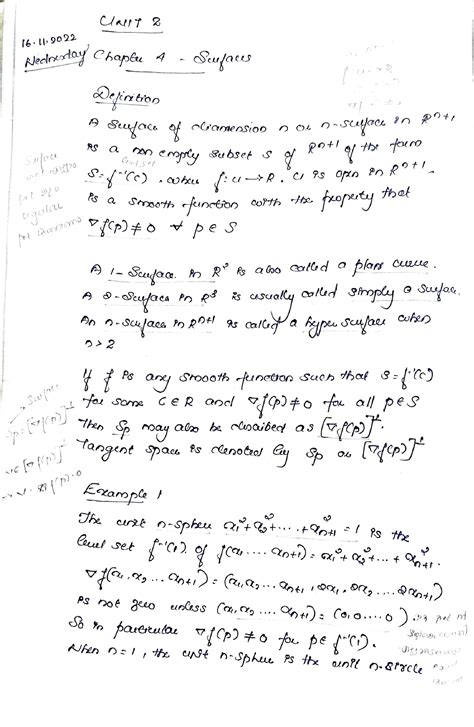 Class 2
16.11.2022
Wednesday Chapter 4 - Surfaces
Definition
A Surface of diamension n or n-surface in R^{n+1}
is a non empty subset S of R^{n+1} of the form
S = f^{-1}(c). when f: U → R. U is open in R^{n+1}.
is a smooth function with the property that
∇f(p) ≠ 0 ∀ p ∈ S
A 1-Surface in R² is also called a plane curve.
A 2-Surface in R³ is usually called simply a Surface.
An n-surface in R^{n+1} is called a hyper surface when
n > 2
If f is any smooth function such that S = f^{-1}(c)
for some C ∈ R and ∇f(p) ≠ 0 for all p ∈ S
then Sp may also be described as [∇f(p)]^⊥.
Tangent space is denoted by Sp or [∇f(p)]^⊥
→ Surface
Sp = [∇f(p)]^⊥
v ∈ [∇f(p)]^⊥
Example 1
The unit n-sphere x₁² + x₂² + ... + x²ₙ₊₁ = 1 is the
level set f^{-1}(1) of f(x₁ ... xₙ₊₁) = x₁² + x₂² + ... + x²ₙ₊₁.
∇f(x₁, x₂ ... xₙ₊₁) = (x₁, x₂ ... xₙ₊₁, 2x₁, 2x₂ ... 2xₙ₊₁)
is not zero unless (x₁, x₂ ... xₙ₊₁) = (0, 0 .... 0)
So in particular ∇f(p) ≠ 0 for p ∈ f^{-1}(1).
When n = 1, the unit n-sphere is the unit n-circle